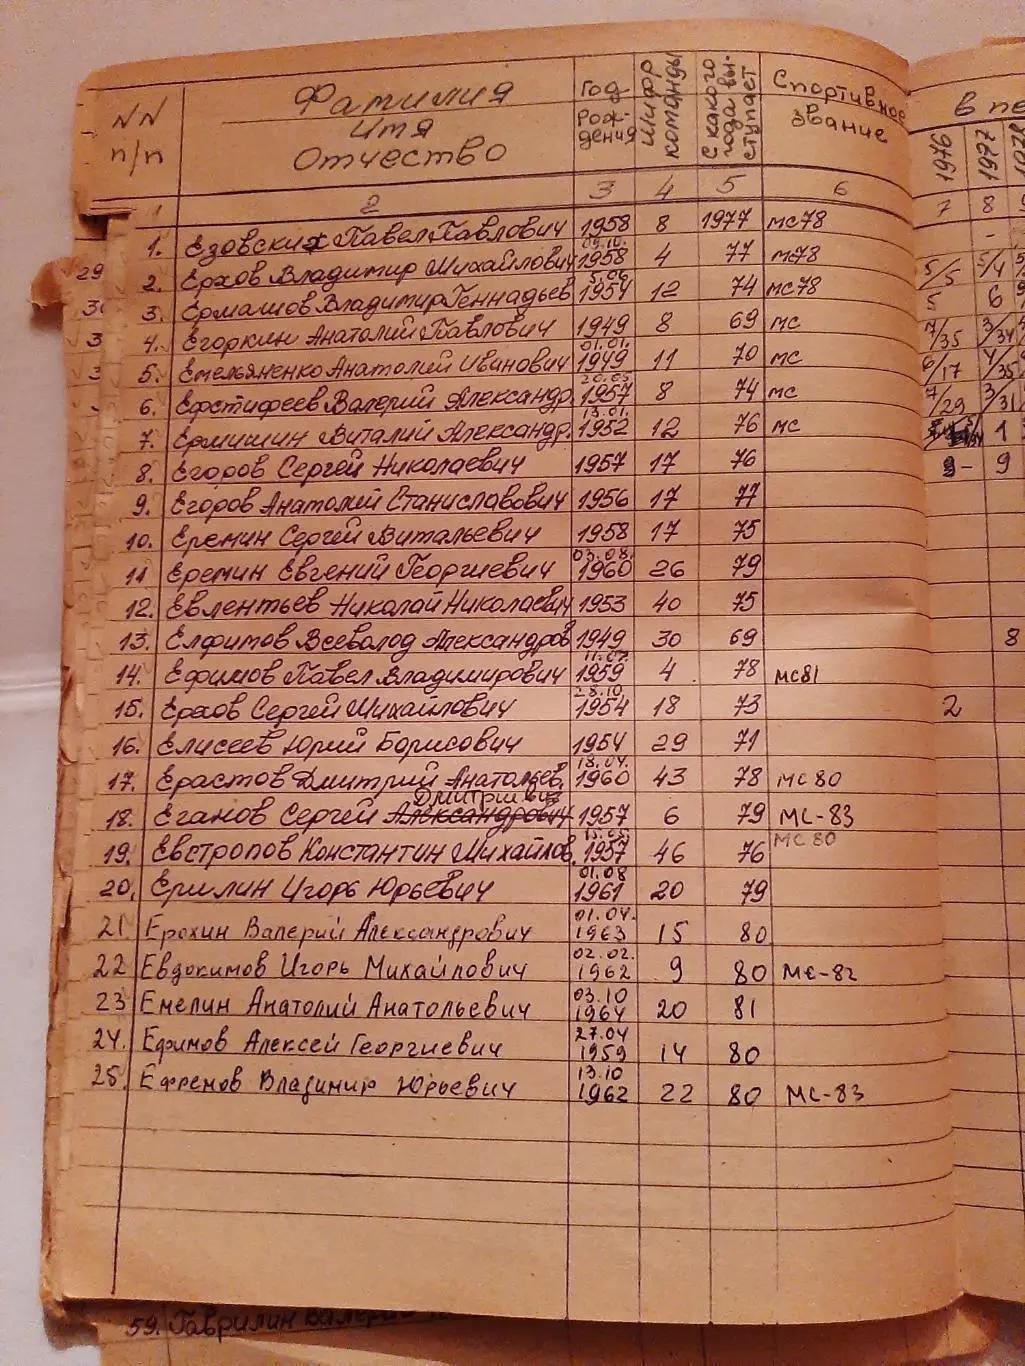 NN п/п Фамилия Имя Отчество Год рождения Шифр команды С какого года выступает Спортивное звание В пе
1976 1977 1978
1 2 3 4 5 6 7 8 9
1. Езовских Павел Павлович 1958 8 1977 мс78 -
2. Ерхов Владимир Михайлович 09.10. 1958 4 77 мс78 5/5 5/4
3. Ермашов Владимир Геннадьев 5.06 1954 12 74 мс78 5 6
4. Егоркин Анатолий Павлович 1949 8 69 мс 7/35 3/34
5. Емельяненко Анатолий Иванович 01.01. 1949 11 70 мс 6/17 4/35
6. Ефстифеев Валерий Александр. 20.05 1957 8 74 мс 7/29 3/31
7. Ермишин Виталий Александр. 13.01. 1952 12 76 мс 1
8. Егоров Сергей Николаевич 1957 17 76 9- 9
9. Егоров Анатолий Станиславович 1956 17 77
10. Еремин Сергей Витальевич 1958 17 75
11 Еремин Евгений Георгиевич 03.08. 1960 26 79
12. Евлентьев Николай Николаевич 1953 40 75
13. Елфимов Всеволод Александров 1949 30 69 8
14. Ефимов Павел Владимирович 11.07. 1959 4 78 мс81
15. Ерхов Сергей Михайлович 28.10. 1954 18 73 2
16. Елисеев Юрий Борисович 1954 29 71
17. Ерастов Дмитрий Анатольев. 18.04. 1960 43 78 мс 80
Дмитриевич
18. Еганов Сергей Александрович 1957 6 79 МС-83
19. Евстропов Константин Михайлов. 15.05. 1957 46 76 МС 80
20. Ершлин Игорь Юрьевич 01.08 1961 20 79
21 Ерохин Валерий Александрович 01.04. 1963 15 80
22 Евдокимов Игорь Михайлович 02.02. 1962 9 80 МС-82
23 Емелин Анатолий Анатольевич 03.10 1964 20 81
24. Ефимов Алексей Георгиевич 27.04 1959 14 80
25. Ефремов Владимир Юрьевич 13.10 1962 22 80 МС-83
29
59. Гаврилин Валерий